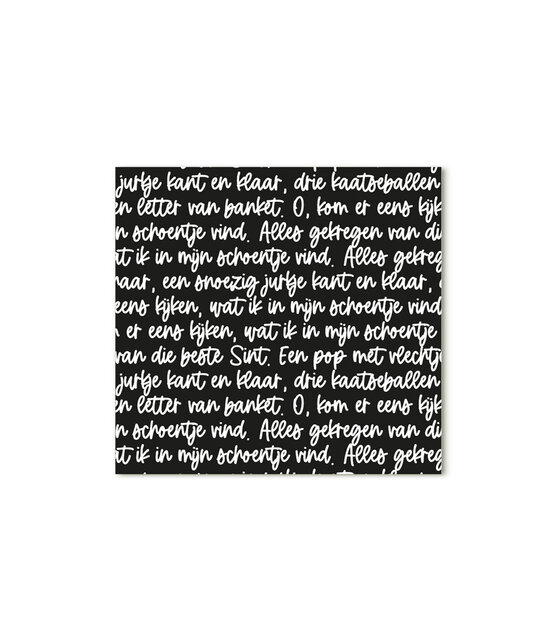 jurkje kant en klaar, drie kaatseballen
en letter van banket. O, kom er eens kijk
n schoentje vind. Alles gekregen van di
at ik in mijn schoentje vind. Alles gekreg
haar, een snoezig jurkje kant en klaar,
eens kijken, wat ik in mijn schoentje vind
er eens kijken, wat ik in mijn schoentje
van die beste Sint. Een pop met vlechtj
jurkje kant en klaar, drie kaatseballen
en letter van banket. O, kom er eens kijk
n schoentje vind. Alles gekregen van di
at ik in mijn schoentje vind. Alles gekreg